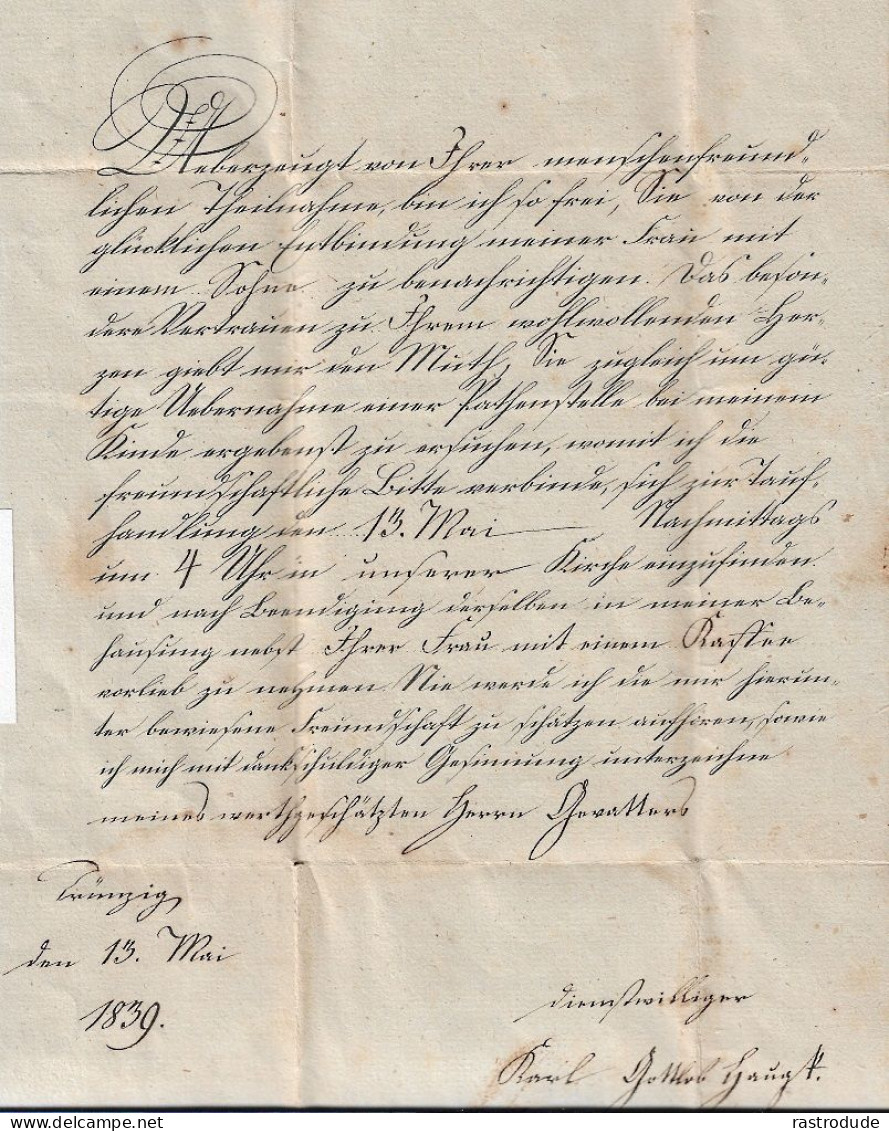 Ueberzeugt von Ihrer menschenfreund-
lichen Theilnahme, bin ich so frei, Sie von der
glücklichen Entbindung meiner Frau mit
einem Sohne zu benachrichtigen. Das beson-
dere Vertrauen zu Ihrem wohlwollenden Her-
zen giebt mir den Muth, Sie zugleich um gü-
tige Uebernahme einer Pathenstelle bei meinem
Kinde ergebenst zu ersuchen, womit ich die
freundschaftliche Bitte verbinde, sich zur Tauf-
handlung den 13. Mai Nachmittags
um 4 Uhr in unserer Kirche einzufinden
und nach Beendigung derselben in meiner Be-
hausung nebst Ihrer Frau mit einem Kaffee
vorlieb zu nehmen. Nie werde ich die mir hierun-
ter bewiesene Freundschaft zu schätzen aufhören, sowie
ich mich mit dankschuldiger Gesinnung unterzeichne
meines werthgeschätzten Herrn Gevatters
Trünzig
den 13. Mai
1839.
dienstwilliger
Karl Gottlob
rastrodude